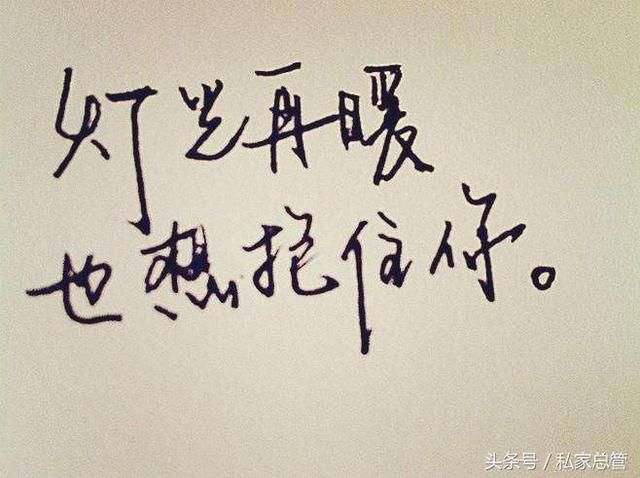 灯光再暖
也想抱住你。
头条号/私家总管